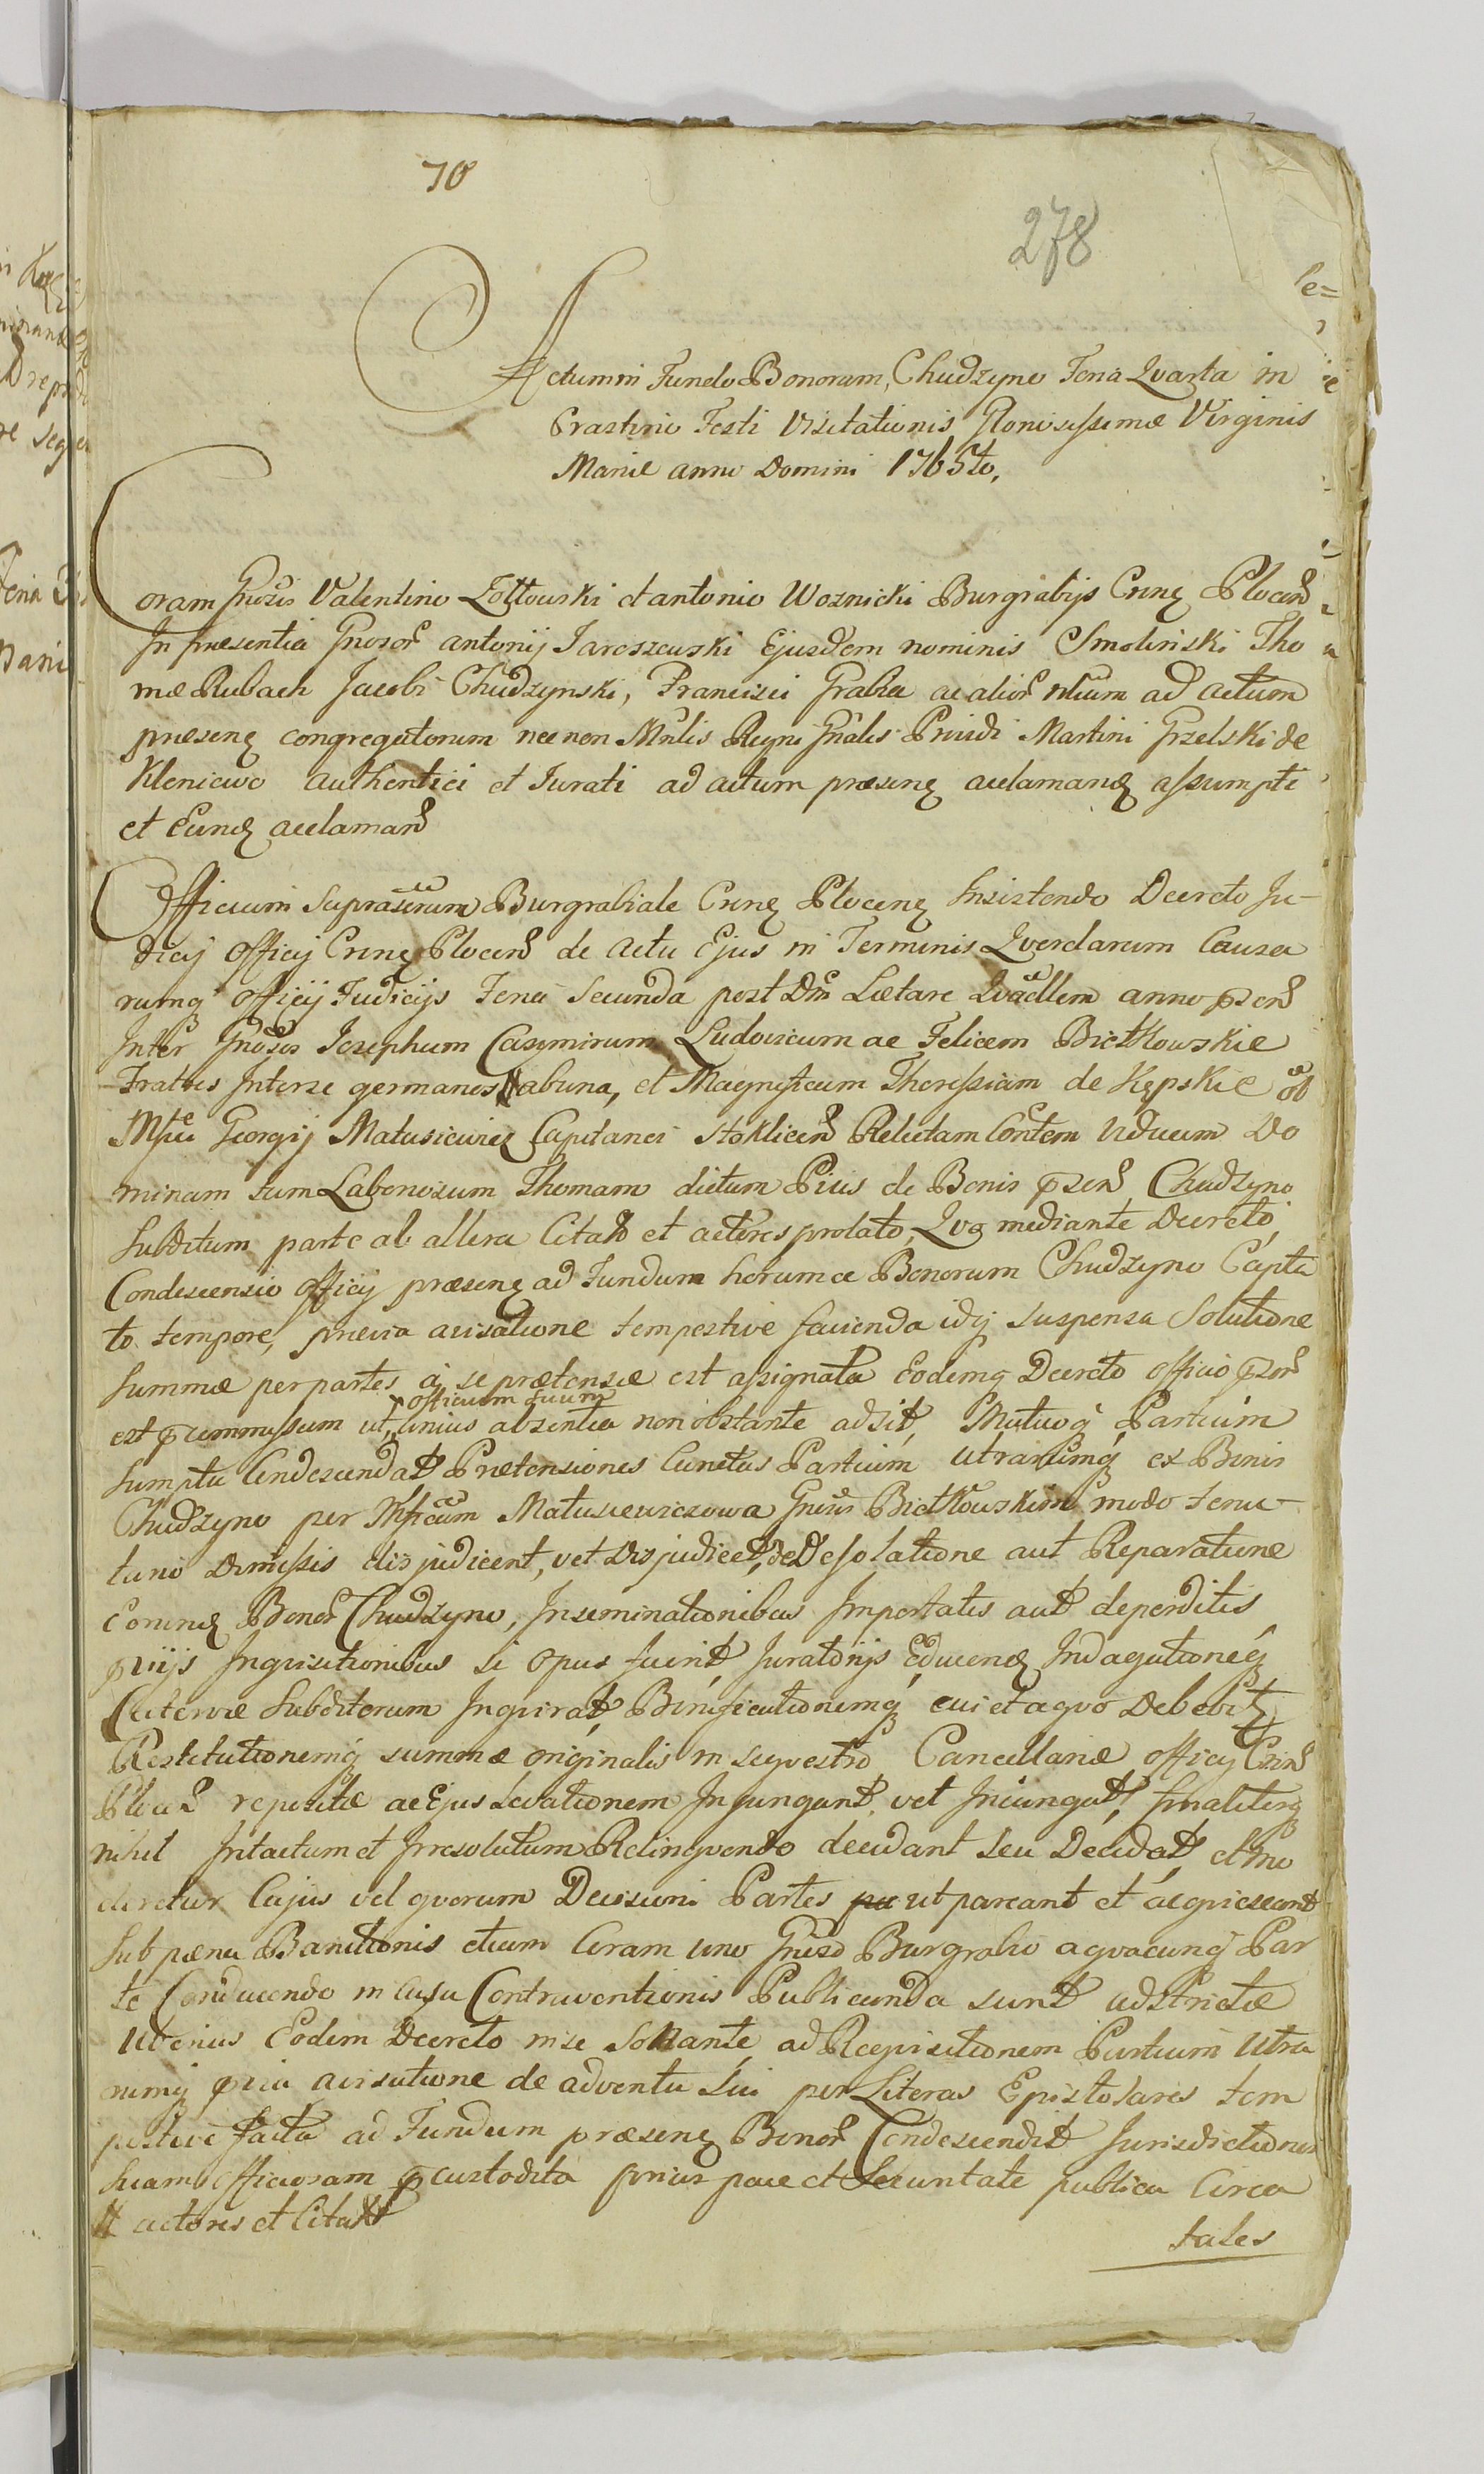 70
278
Actum in Fundo Bonorum Chudzyno Feria Qvarta in
Crastino Festi Visitationis Gloriosissimæ Virginis
Mariæ anno Domini 1765to.
Coram Gnosis Valentino Zołtowski et antonio Woznicki Burgrabijs Cren Plocen
In præsentia Gnosor antonij Jaroszewski Ejusdem nominis Smolinski Tho
mæ Rubach Jacobi Chudzynski, Francisci Grabia ac alior nlium ad actum
præsen congregatorum nec non Mnlis Regni Gnalis Pruidi Martini Grzelski de
Kleniewo authentici et Jurati ad actum præsen acclamand assumpti
et Eund acclamand
Officium Suprascrum Burgrabiale Cren Plocen Insistendo Decreto Ju-
dicij officij Cren Plocen de actu Ejus in Terminis Qverelarum Causa
rumq officij Judicijs Feria Secunda post Dm Lætare Qvadlem anno pzen
Inter Gnosos Josephum Casimirum Ludovicum ac Felicem Bietkowskie
Fratres Interse germanos abuna, et Magnificam Theressiam de Kępskie ol
Mfci Georgij Matusiewicz Capitanei Stoklicen Relictam Contem viduam Do
minam tum Laboriosum Thomam dictum Pius de Bonis pzen Chudzyno
Subditum parte ab altera Citat et actores prolato, Qvo mediante Decreto,
Condescensio officij præsen ad Fundum horumce Bonorum Chudzyno Capta
to tempore, prævia avisatione tempestive facienda idq suspensa Solutione
Summæ per partes à se prætensæ est assignata Eodemq Decreto officio pzen
officium suum
est præmissum ut unius absentia non obstante adsit, Mutuoq Partium
Sumptu Condescendat Prætensiones Cunctas Partium utrarumq ex Bonis
Chudzyno per Mficam Matusiewiczowa Gnosis Bietkowskim modo tenu-
tario dimissis disjudicent, vel Disjudicet, de Desolatione aut Reparatione
Eorund Bonor Chudzyno, Inseminationibus Importatis aut deperditis
pviijs Inqvisitionibus si opus fuerit Juratorijs Educend Indagationeq
Cætervæ Subditorum Inqvirat, Bonificationemq cui et a qvo Debebit
Restitutionemq summæ originalis in seqvestro Cancellariæ officij Cren
Plocen repositæ ac Ejus Levationem Injungant, vel Iniungat, finaliterq
nihil Intactum et Irresolutum Relinqvendo decidant seu Decidat, et mo
deretur Cujus vel qvorum Decisioni Partes ut pareant et acqviescant
Sub pæna Banitionis etiam Coram uno Gnoso Burgrabio a qvacunq Par
te Conducendo in casu Contraventionis Publicanda sunt adstrictæ
Uberius Eodem Decreto in se Sonante, ad Reqvisitionem Partium Utra
rumq pvia avisatione de adventu Sui per Literas Epistolares tem
pestive facta ad Fundum præsen Bonor Condescendit Jurisdictionem
Suam officiosam pcustodita prius pace et Securitate publica Circa
actores et Citat
tales